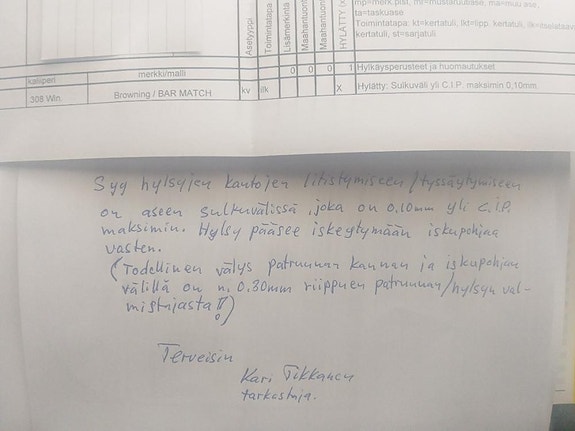 mp=merk.pist, ml=mustaruutiase, ma=muu ase,
ta=taskuase
Toimintatapa: kt=kertatuli, lkt=lipp. kertatuli, ilk=itselataava
kertatuli, st=sarjatuli
Asetyyppi
Toimintatapa
Lisämerkintä
Maahantuonti
Maahantuonti
HYLÄTTY (x
0 0 0 1 Hylkäysperusteet ja huomautukset
kaliiperi merkki/malli
308 Win. Browning / BAR MATCH kv ilk X Hylätty: Sulkuväli yli C.I.P. maksimin 0,10mm.
Syy hylsyjen kantojen litistymiseen / tyssäytymiseen
on aseen sulkuvälissä, joka on 0.10mm yli C.I.P.
maksimin. Hylsy pääsee iskeytymään iskupohjaa
vasten.
(Todellinen välys patruunan kannan ja iskupohjan
välillä on n. 0.30mm riippuen patruunan/hylsyn val-
mistajasta!!)
Terveisin
Kari Tikkanen
tarkastaja.